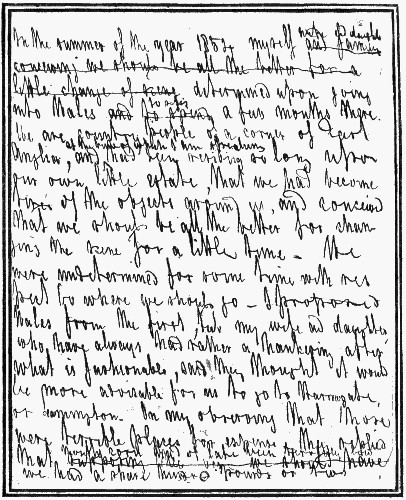 wife & daughter
In the summer of the year 1854 myself and family
conceiving we should be all the better for a
little change of scene determined upon going
to pass
into Wales and to spend a few months there.
We are country people of a corner of East
at the time of which I am speaking
Anglia, and had been residing so long upon
our own little estate, that we had become
tired of the objects around us, and conceived
that we should be all the better for chan
ging the scene for a little time - We
were undetermined for some time with res
pect to where we should go - I proposed
Wales from the first, but my wife and daughter
who have always had rather a hankering after
what is fashionable, said they thought it would
be more advisable for us to go to Harrowgate,
or Leamington. On my observing that those
were terrible places for expense they replied
that though corn had of late been we should have
we had a spare hundred pounds or two